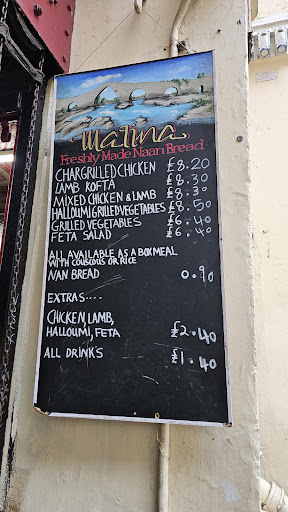 Malina
Freshly Made Naan Bread
CHARGRILLED CHICKEN £8.20
LAMB KOFTA £8.30
MIXED CHICKEN & LAMB £8.30
HALLOUMI GRILLED VEGETABLES £8.50
GRILLED VEGETABLES £6.40
FETA SALAD £6.40
ALL AVAILABLE AS A BOXMEAL
WITH COUSCOUS OR RICE
NAN BREAD 0.90
EXTRAS....
CHICKEN, LAMB,
HALLOUMI, FETA £2.40
ALL DRINK'S £1.40